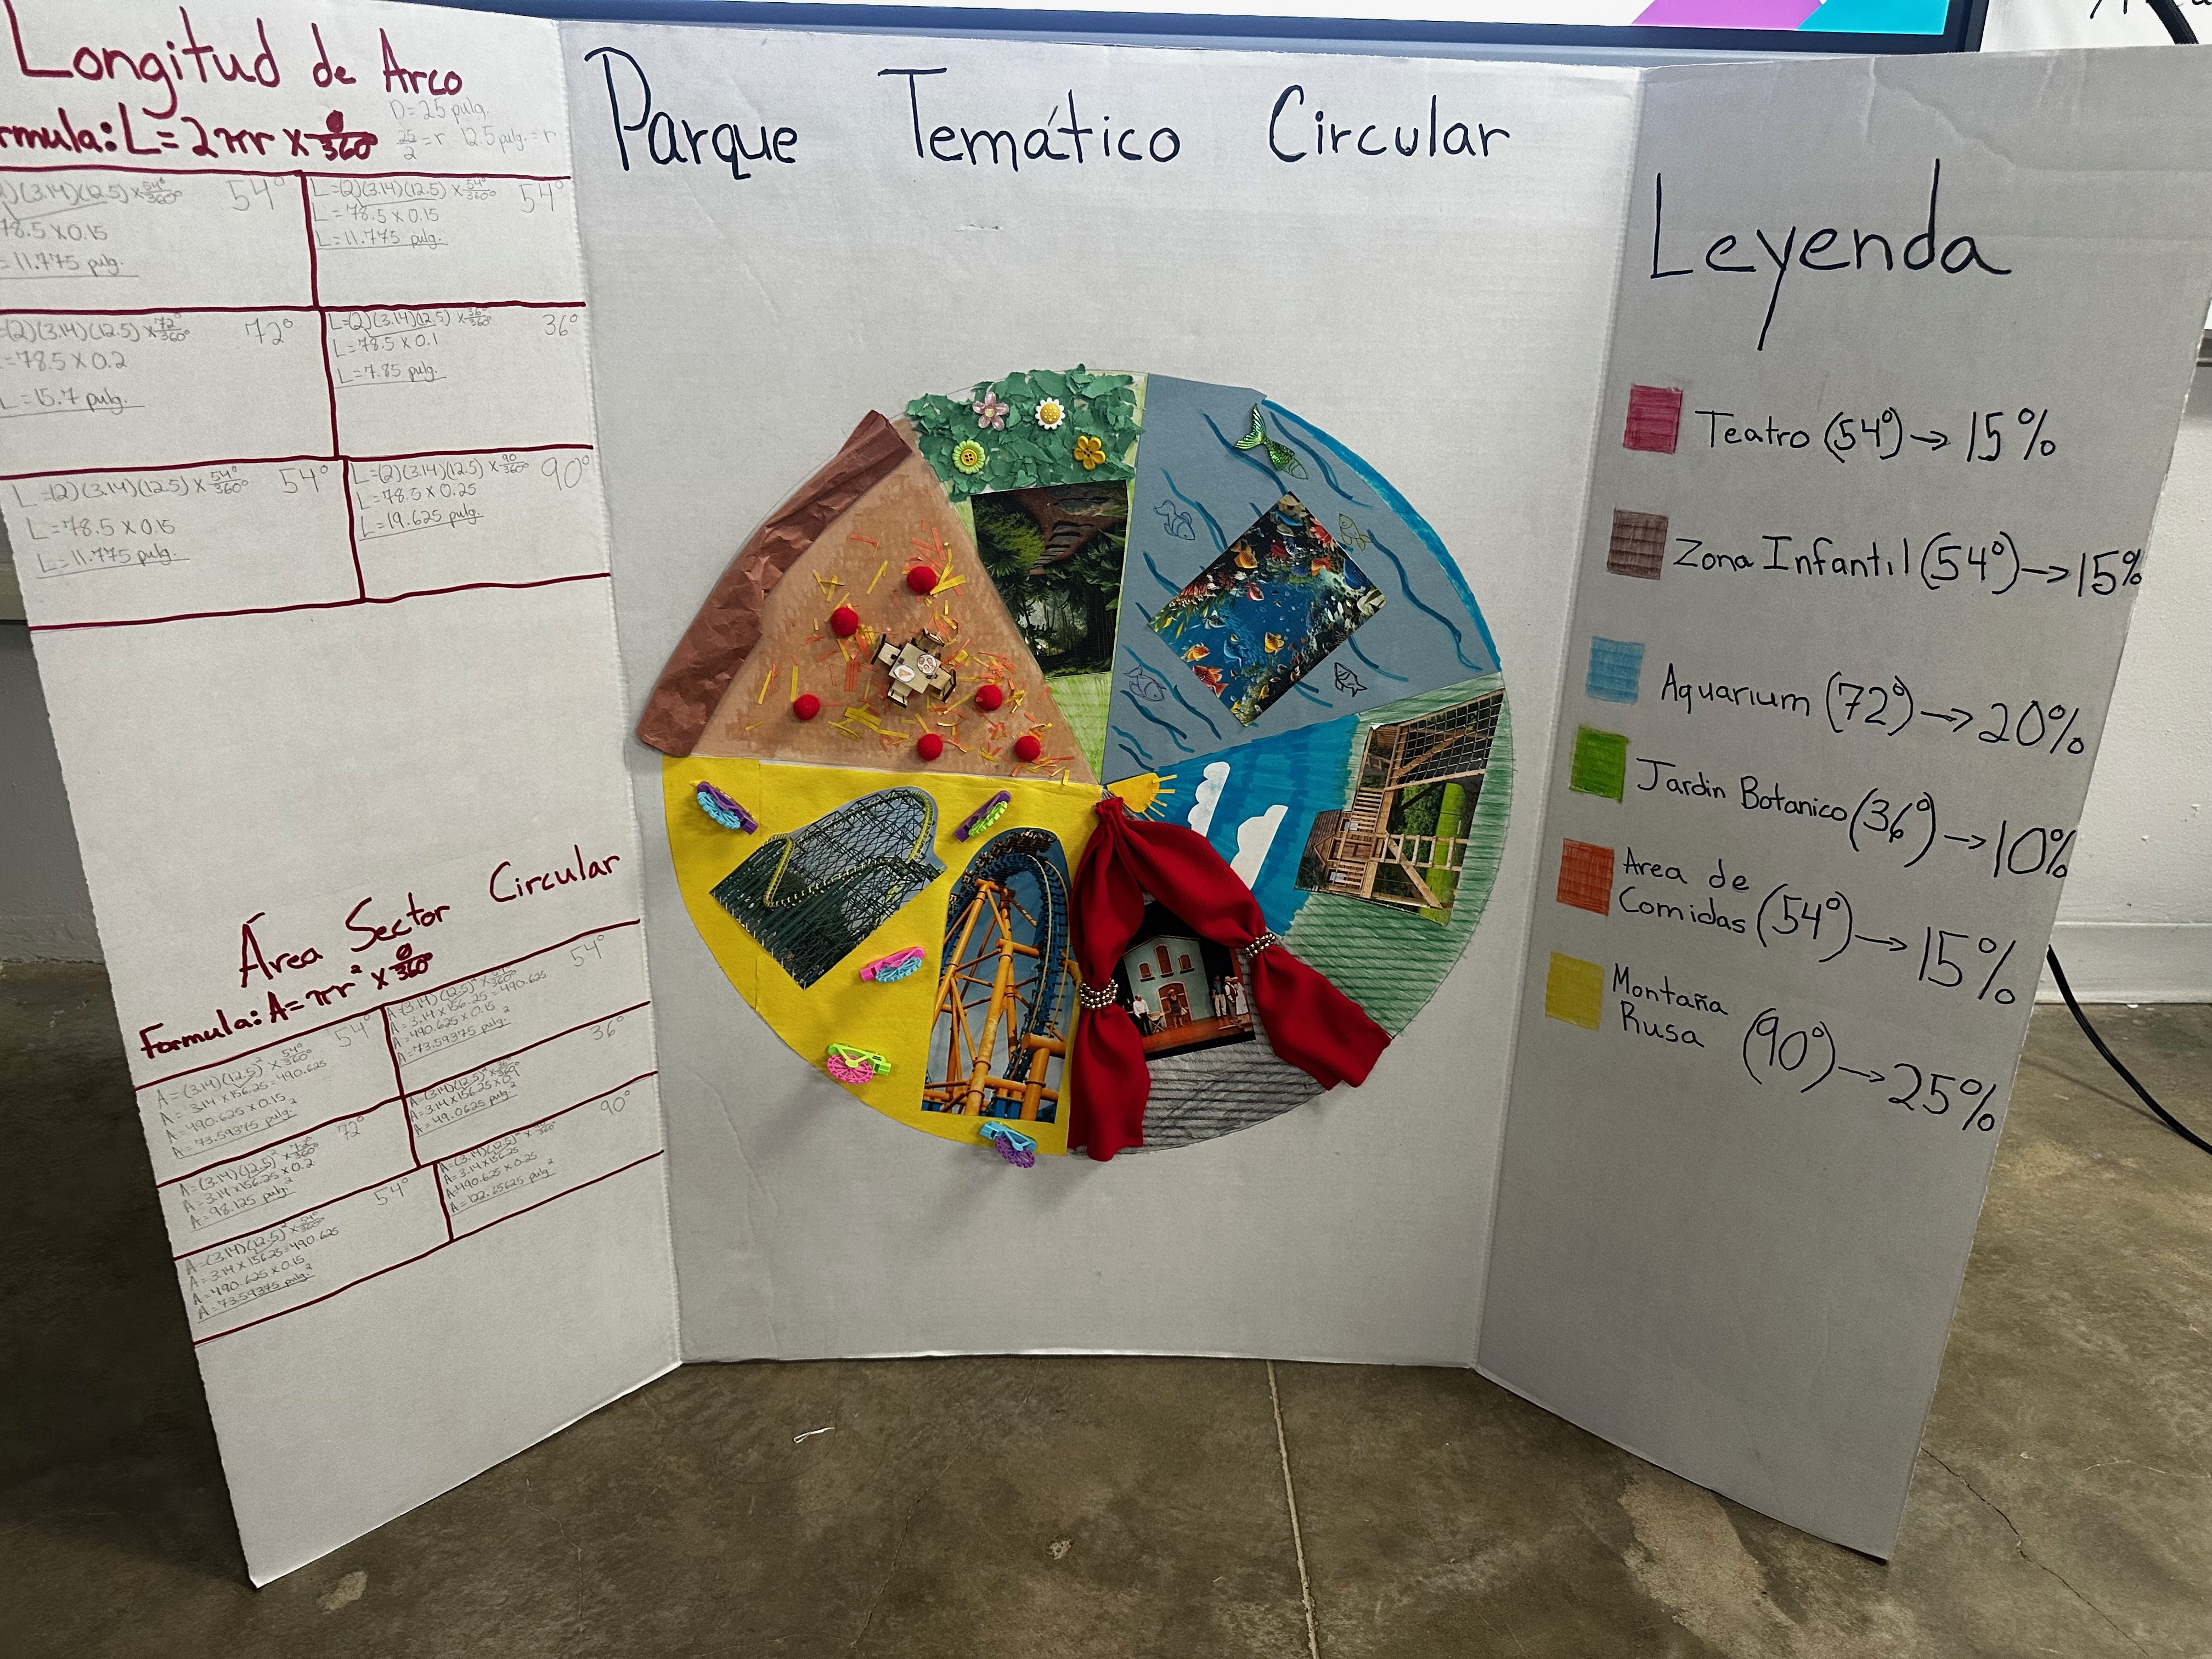 Longitud de Arco
rmula: L = 2πr × θ/360°
D = 25 pulg.
25/2 = r 12.5 pulg. = r
)(3.14)(12.5) × 54°/360° 54°
78.5 × 0.15
= 11.775 pulg.
L = (2)(3.14)(12.5) × 54°/360° 54°
L = 78.5 × 0.15
L = 11.775 pulg.
=(2)(3.14)(12.5) × 72°/360° 72°
= 78.5 × 0.2
L = 15.7 pulg.
L = (2)(3.14)(12.5) × 36°/360° 36°
L = 78.5 × 0.1
L = 7.85 pulg.
L = (2)(3.14)(12.5) × 54°/360° 54°
L = 78.5 × 0.15
L = 11.775 pulg.
L = (2)(3.14)(12.5) × 90/360° 90°
L = 78.5 × 0.25
L = 19.625 pulg.
Área Sector Circular
Formula: A = πr² × θ/360°
54°
A = (3.14)(12.5)² × 54°/360°
A = 3.14 × 156.25 = 490.625
A = 490.625 × 0.15
A = 73.59375 pulg.²
54°
A = (3.14)(12.5)² × 54°/360°
A = 3.14 × 156.25 = 490.625
A = 490.625 × 0.15
A = 73.59375 pulg.²
72°
A = (3.14)(12.5)² × 72°/360°
A = 3.14 × 156.25 × 0.2
A = 98.125 pulg.²
36°
A = (3.14)(12.5)² × 36°/360°
A = 3.14 × 156.25 × 0.1
A = 49.0625 pulg.²
54°
A = (3.14)(12.5)² × 54°/360°
A = 3.14 × 156.25 = 490.625
A = 490.625 × 0.15
A = 73.59375 pulg.²
90°
A = (3.14)(12.5)²
A = 3.14 × 156.25
A = 490.625 × 0.25
A = 122.65625 pulg.²
Parque Temático Circular
Leyenda
Teatro (54°) → 15%
Zona Infantil (54°) → 15%
Aquarium (72°) → 20%
Jardin Botanico (36°) → 10%
Area de
Comidas (54°) → 15%
Montaña
Rusa (90°) → 25%